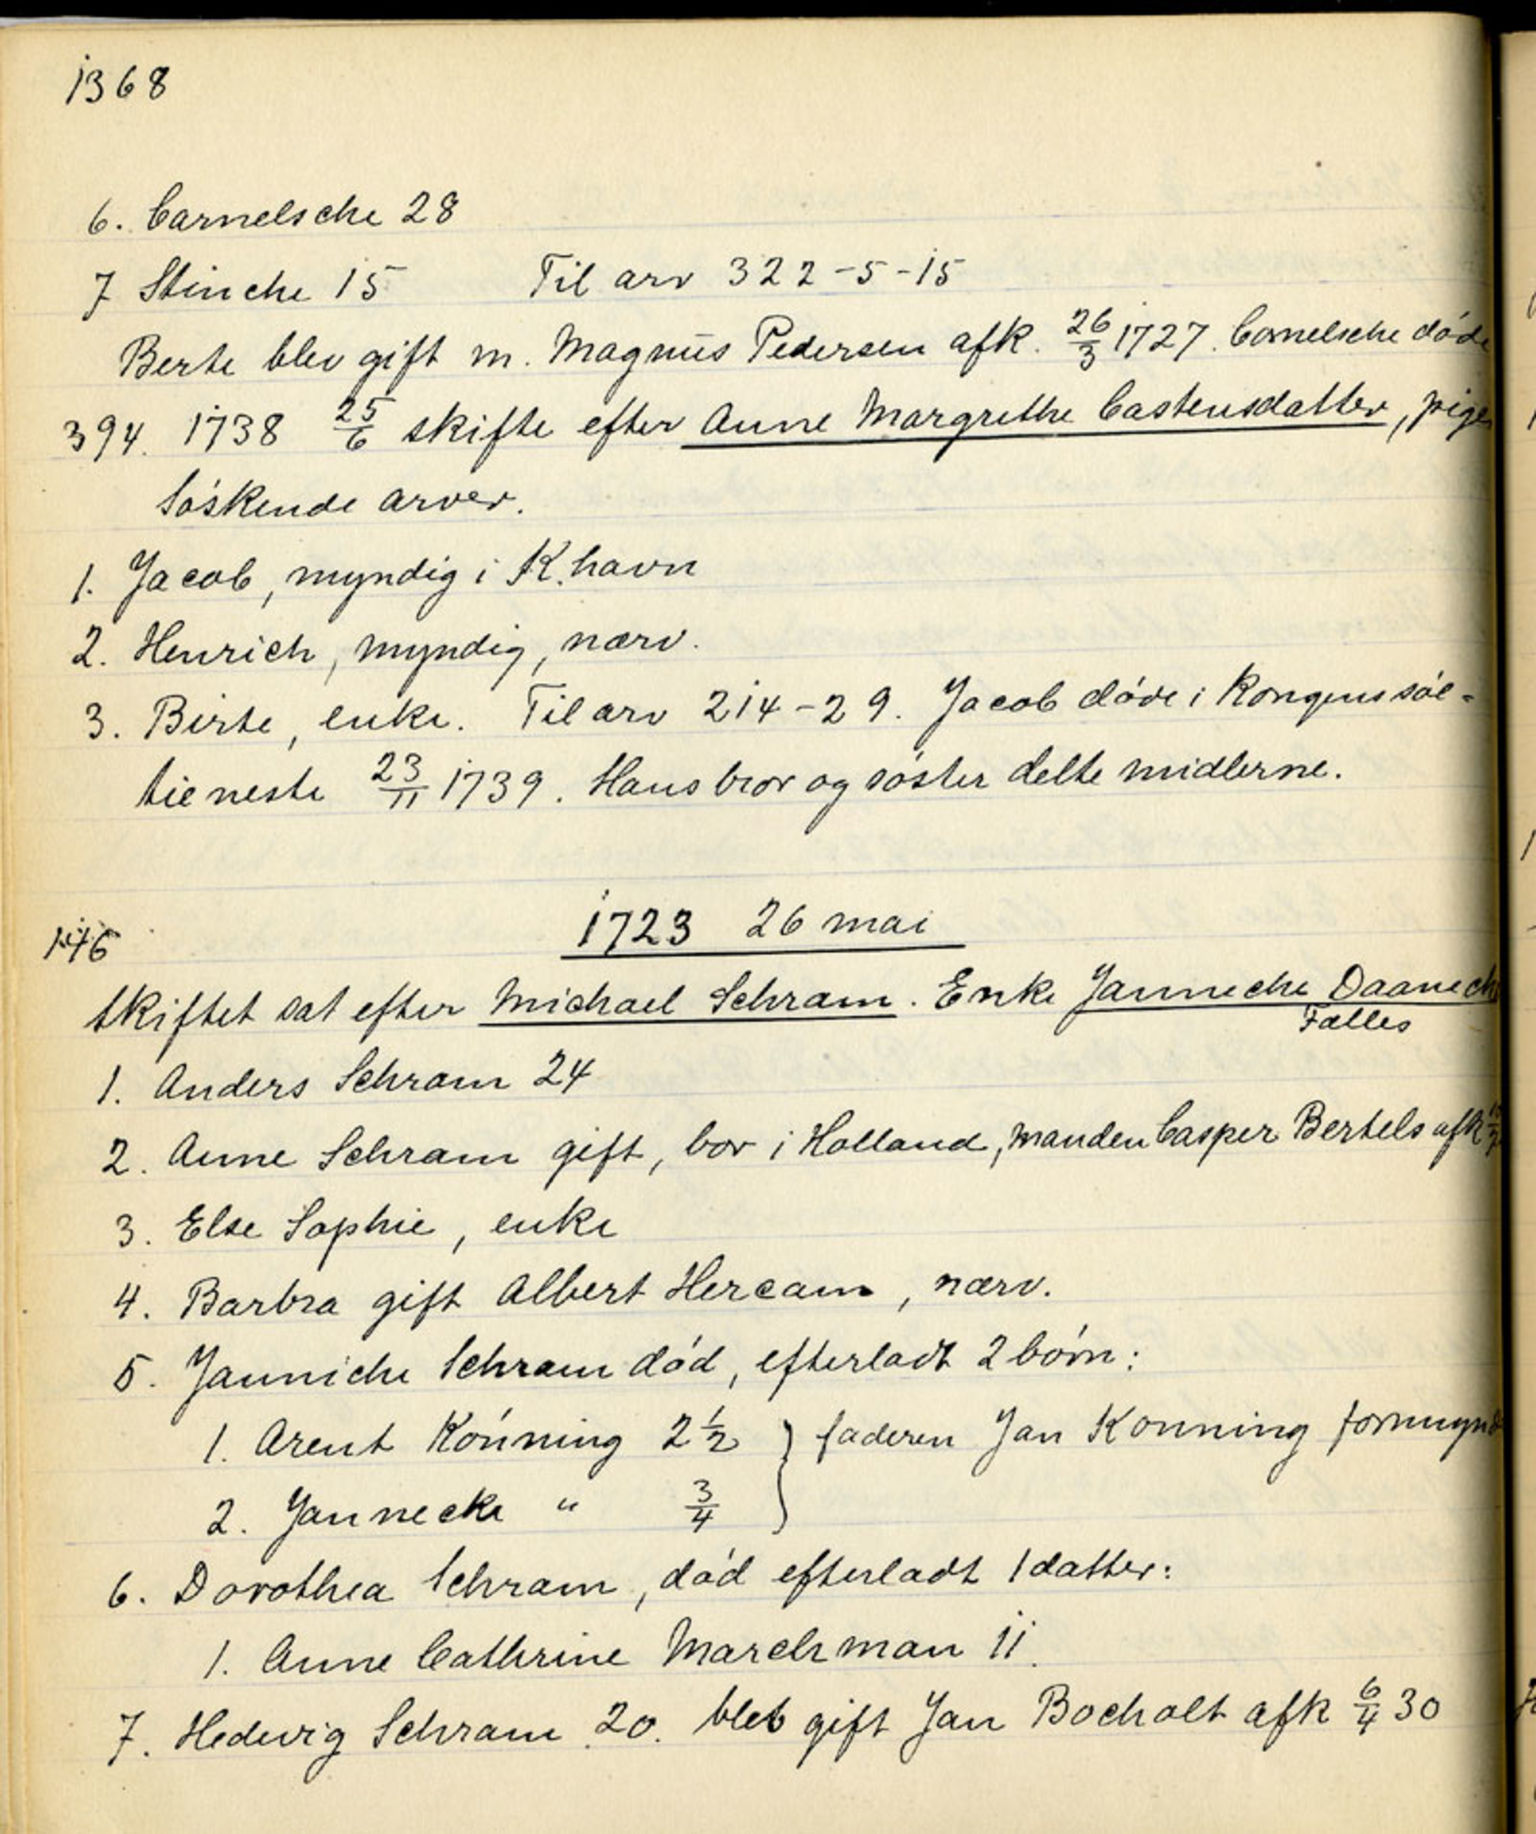 1368
6. Carnelsche 28
7 Stinche 15 Til arv 322-5-15
Berte blev gift m. Magnus Pedersen afk. 26/3 1727. Cornelsche døde
394. 1738 25/6 skifte efter Anne Margrethe Castensdatter, pige
Søskende arver.
1. Jacob, myndig i K.havn
2. Henrich, myndig, nærv.
3. Birte, enke. Til arv 214-29. Jacob døde i Kongens søe-
tieneste 23/11 1739. Hans bror og søster delte midlerne.
146 1723 26 mai
Skiftet sat efter Michael Schram. Enke Janneche Daanech
Fælles
1. Anders Schram 24
2. Anne Schram gift, bor i Holland, manden Casper Bertels afk
3. Else Sophie, enke
4. Barbra gift Albert Hercam, nærv.
5. Janniche Schram død, efterladt 2 børn:
1. Arent Kónning 2 1/2 } faderen Jan Konning formynd
2. Jannecke " 3/4
6. Dorothea Schram, død efterladt 1 datter:
1. Anne Cathrine Marchman 11.
7. Hedevig Schram 20. bleb gift Jan Bocholt afk 6/4 30